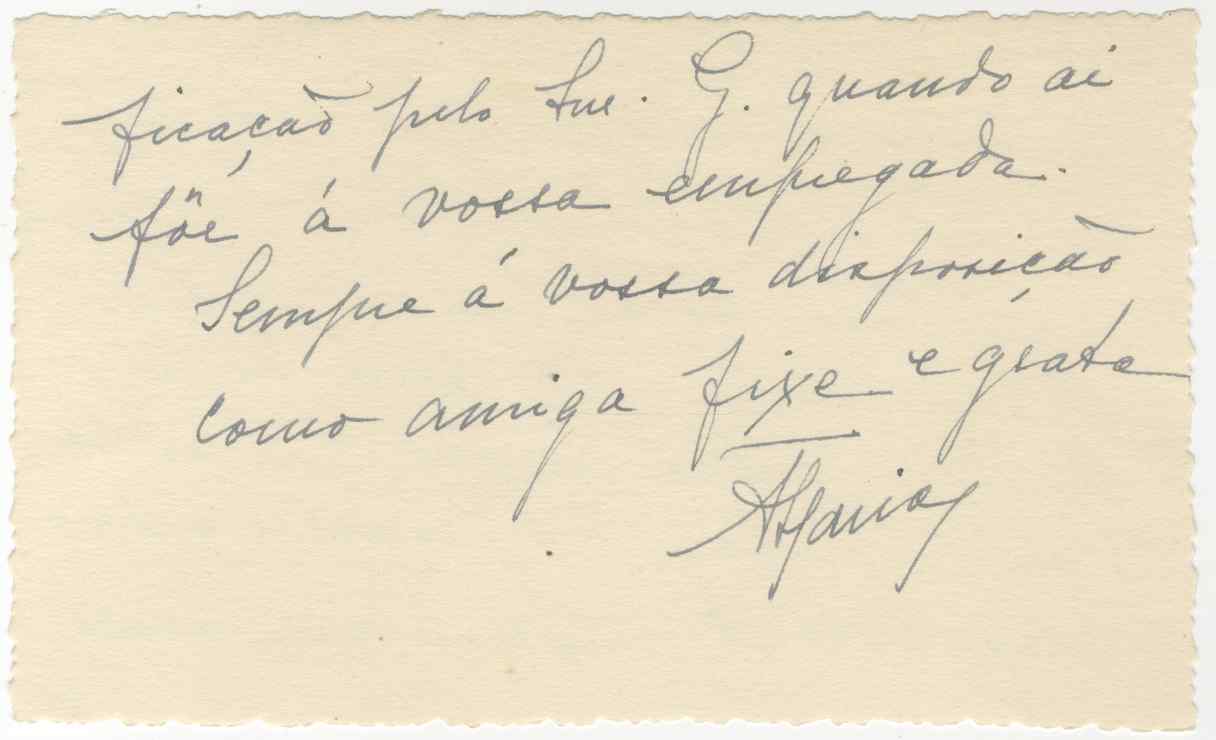 ficação pelo Snr. G. quando aí
fôr á vossa empregada.
Sempre á vossa disposição
como amiga fixe e grata